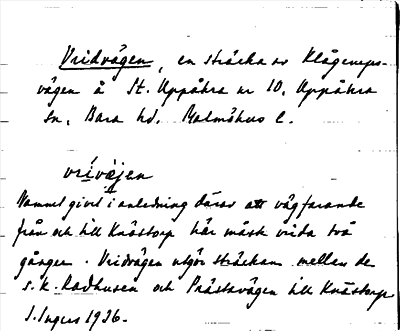 Vridvägen, en sträcka av Klågerups-
vägen å St. Uppåkra nr 10, Uppåkra
sn, Bara hd. Malmöhus l.
vrivæjen
Namnet givet i anledning därav att vägfarande
från och till Knästorp här måste vrida två
gånger. Vridvägen utgör sträckan mellan de
s.k. Radhusen och Prästavägen till Knästorp
S. Ingers 1936.